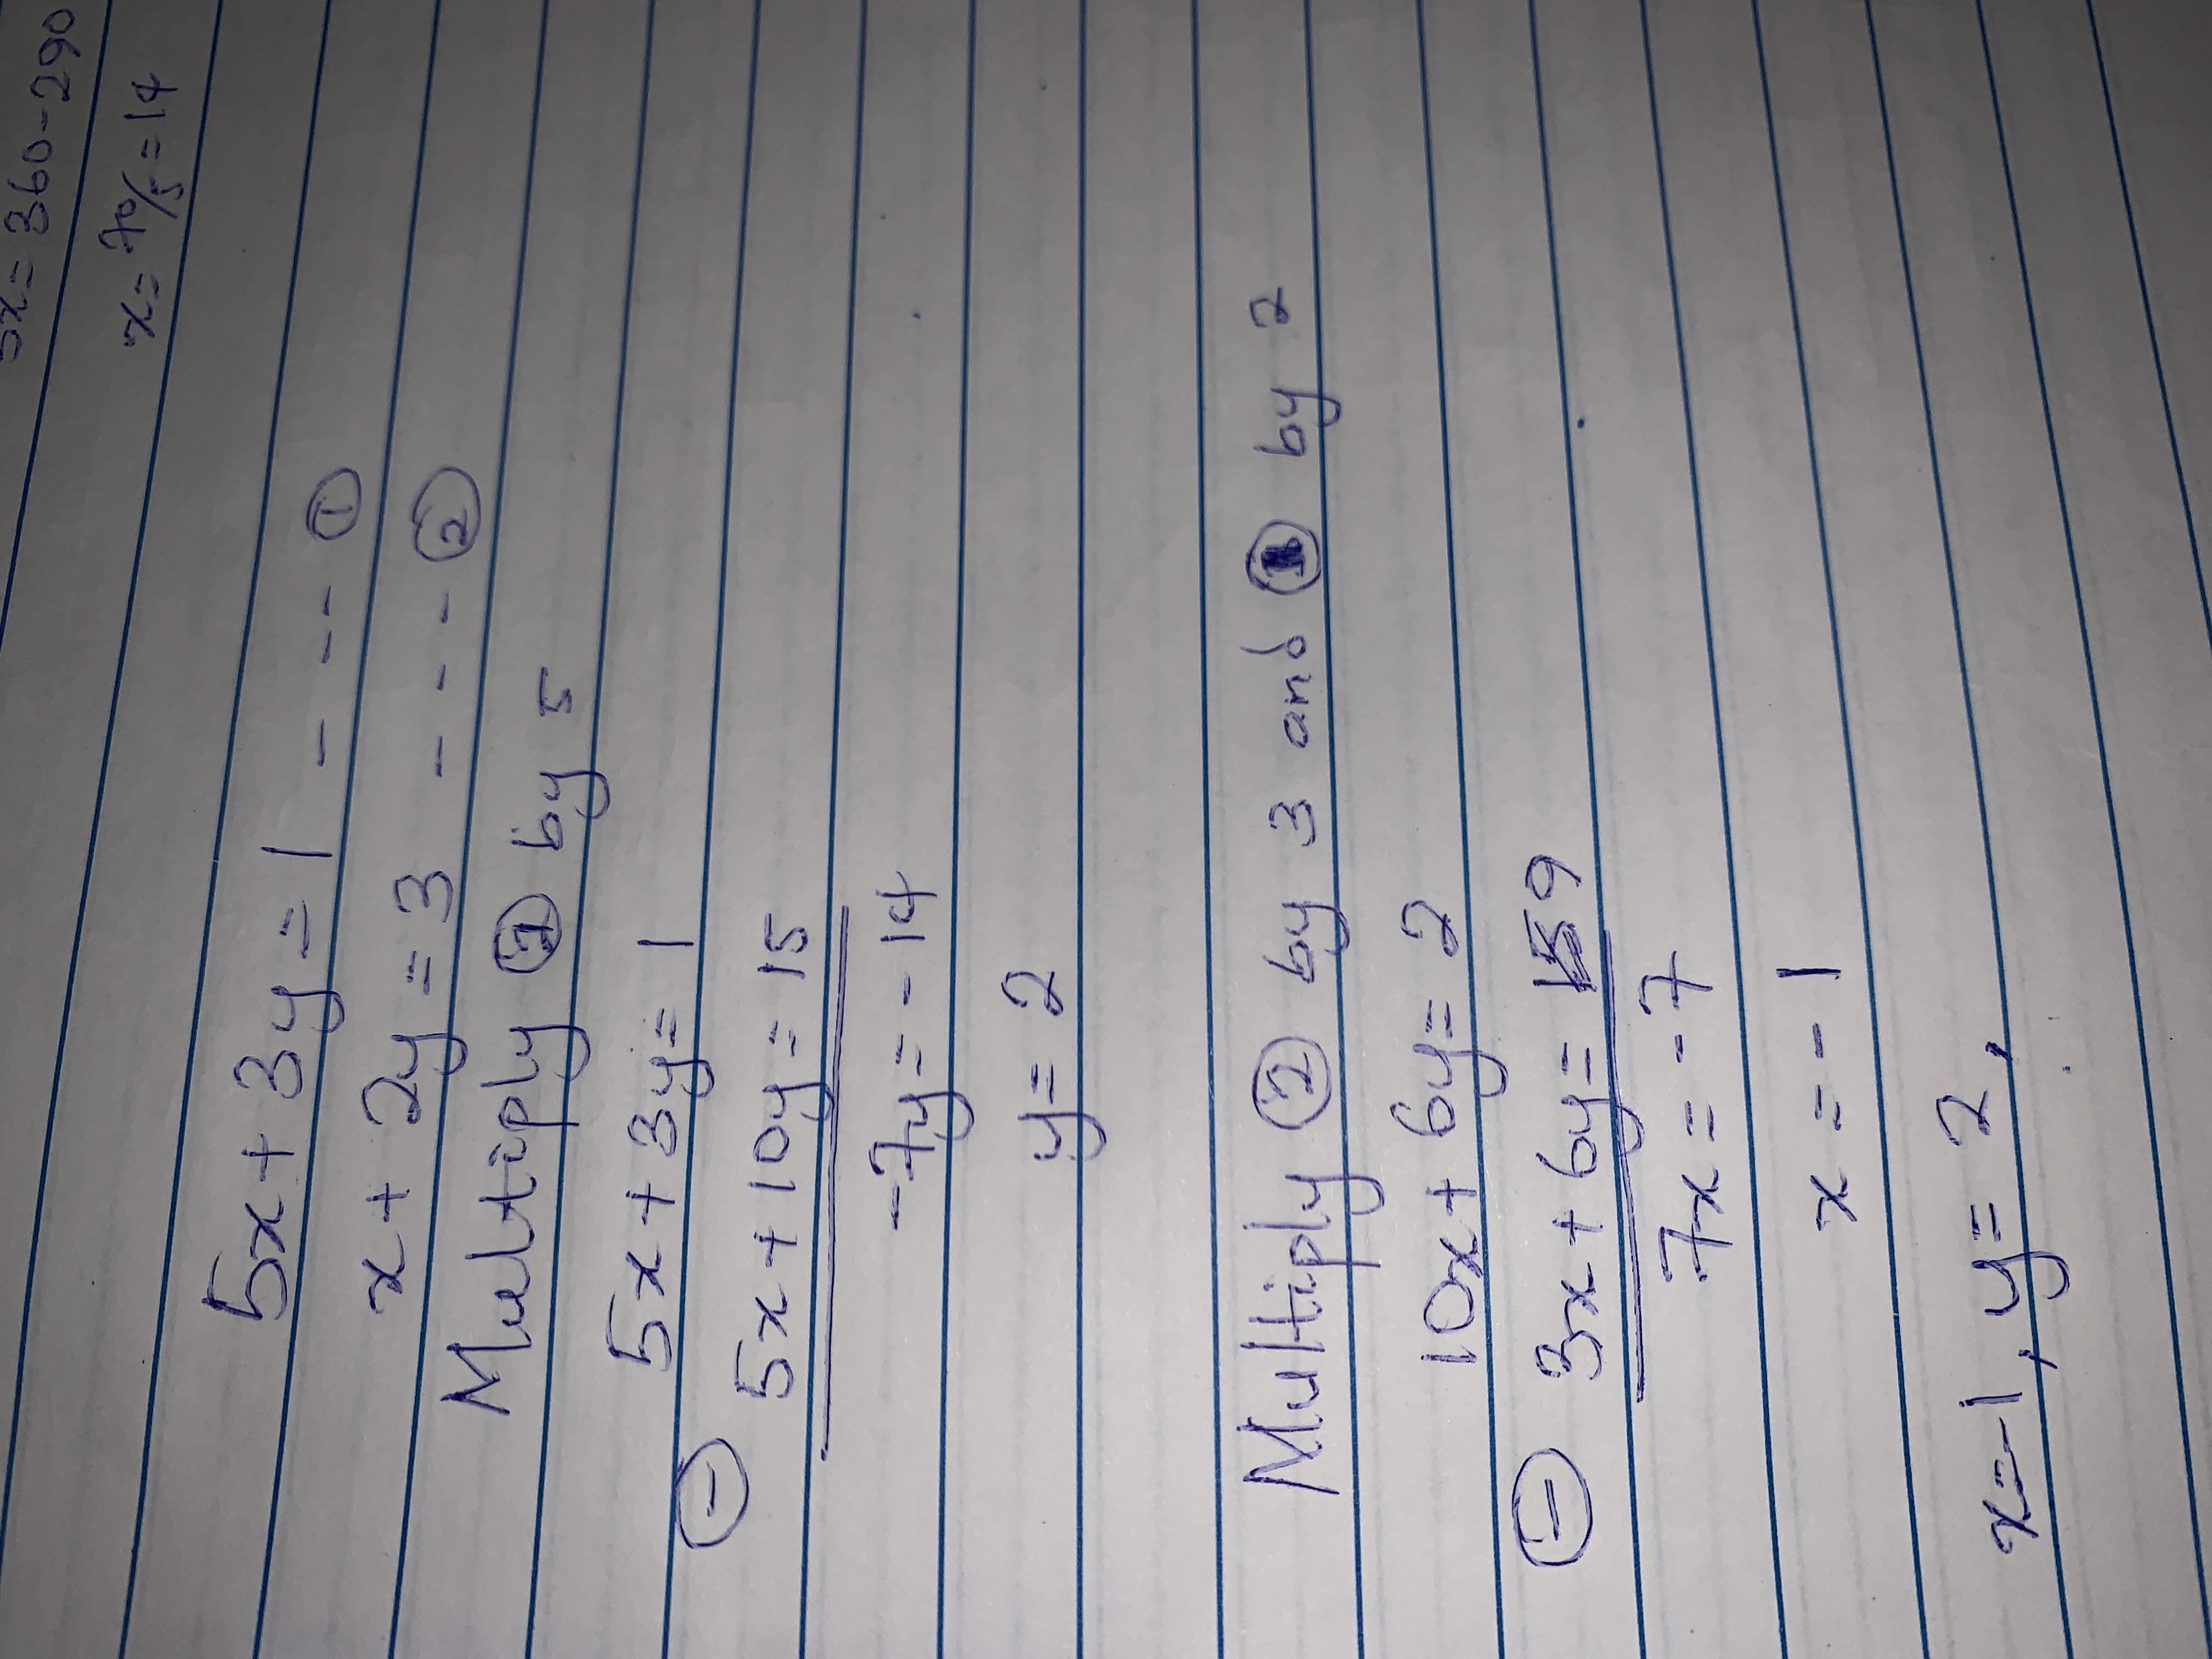 5x = 360-290
x = 70/5 = 14
5x + 3y = 1 - - - ①
x + 2y = 3 - - - ②
Multiply ② by 5
5x + 3y = 1
⊖ 5x + 10y = 15
-7y = -14
y = 2
Multiply ② by 3 and ① by 2
10x + 6y = 2
⊖ 3x + 6y = 9
7x = -7
x = -1
x=-1, y = 2,